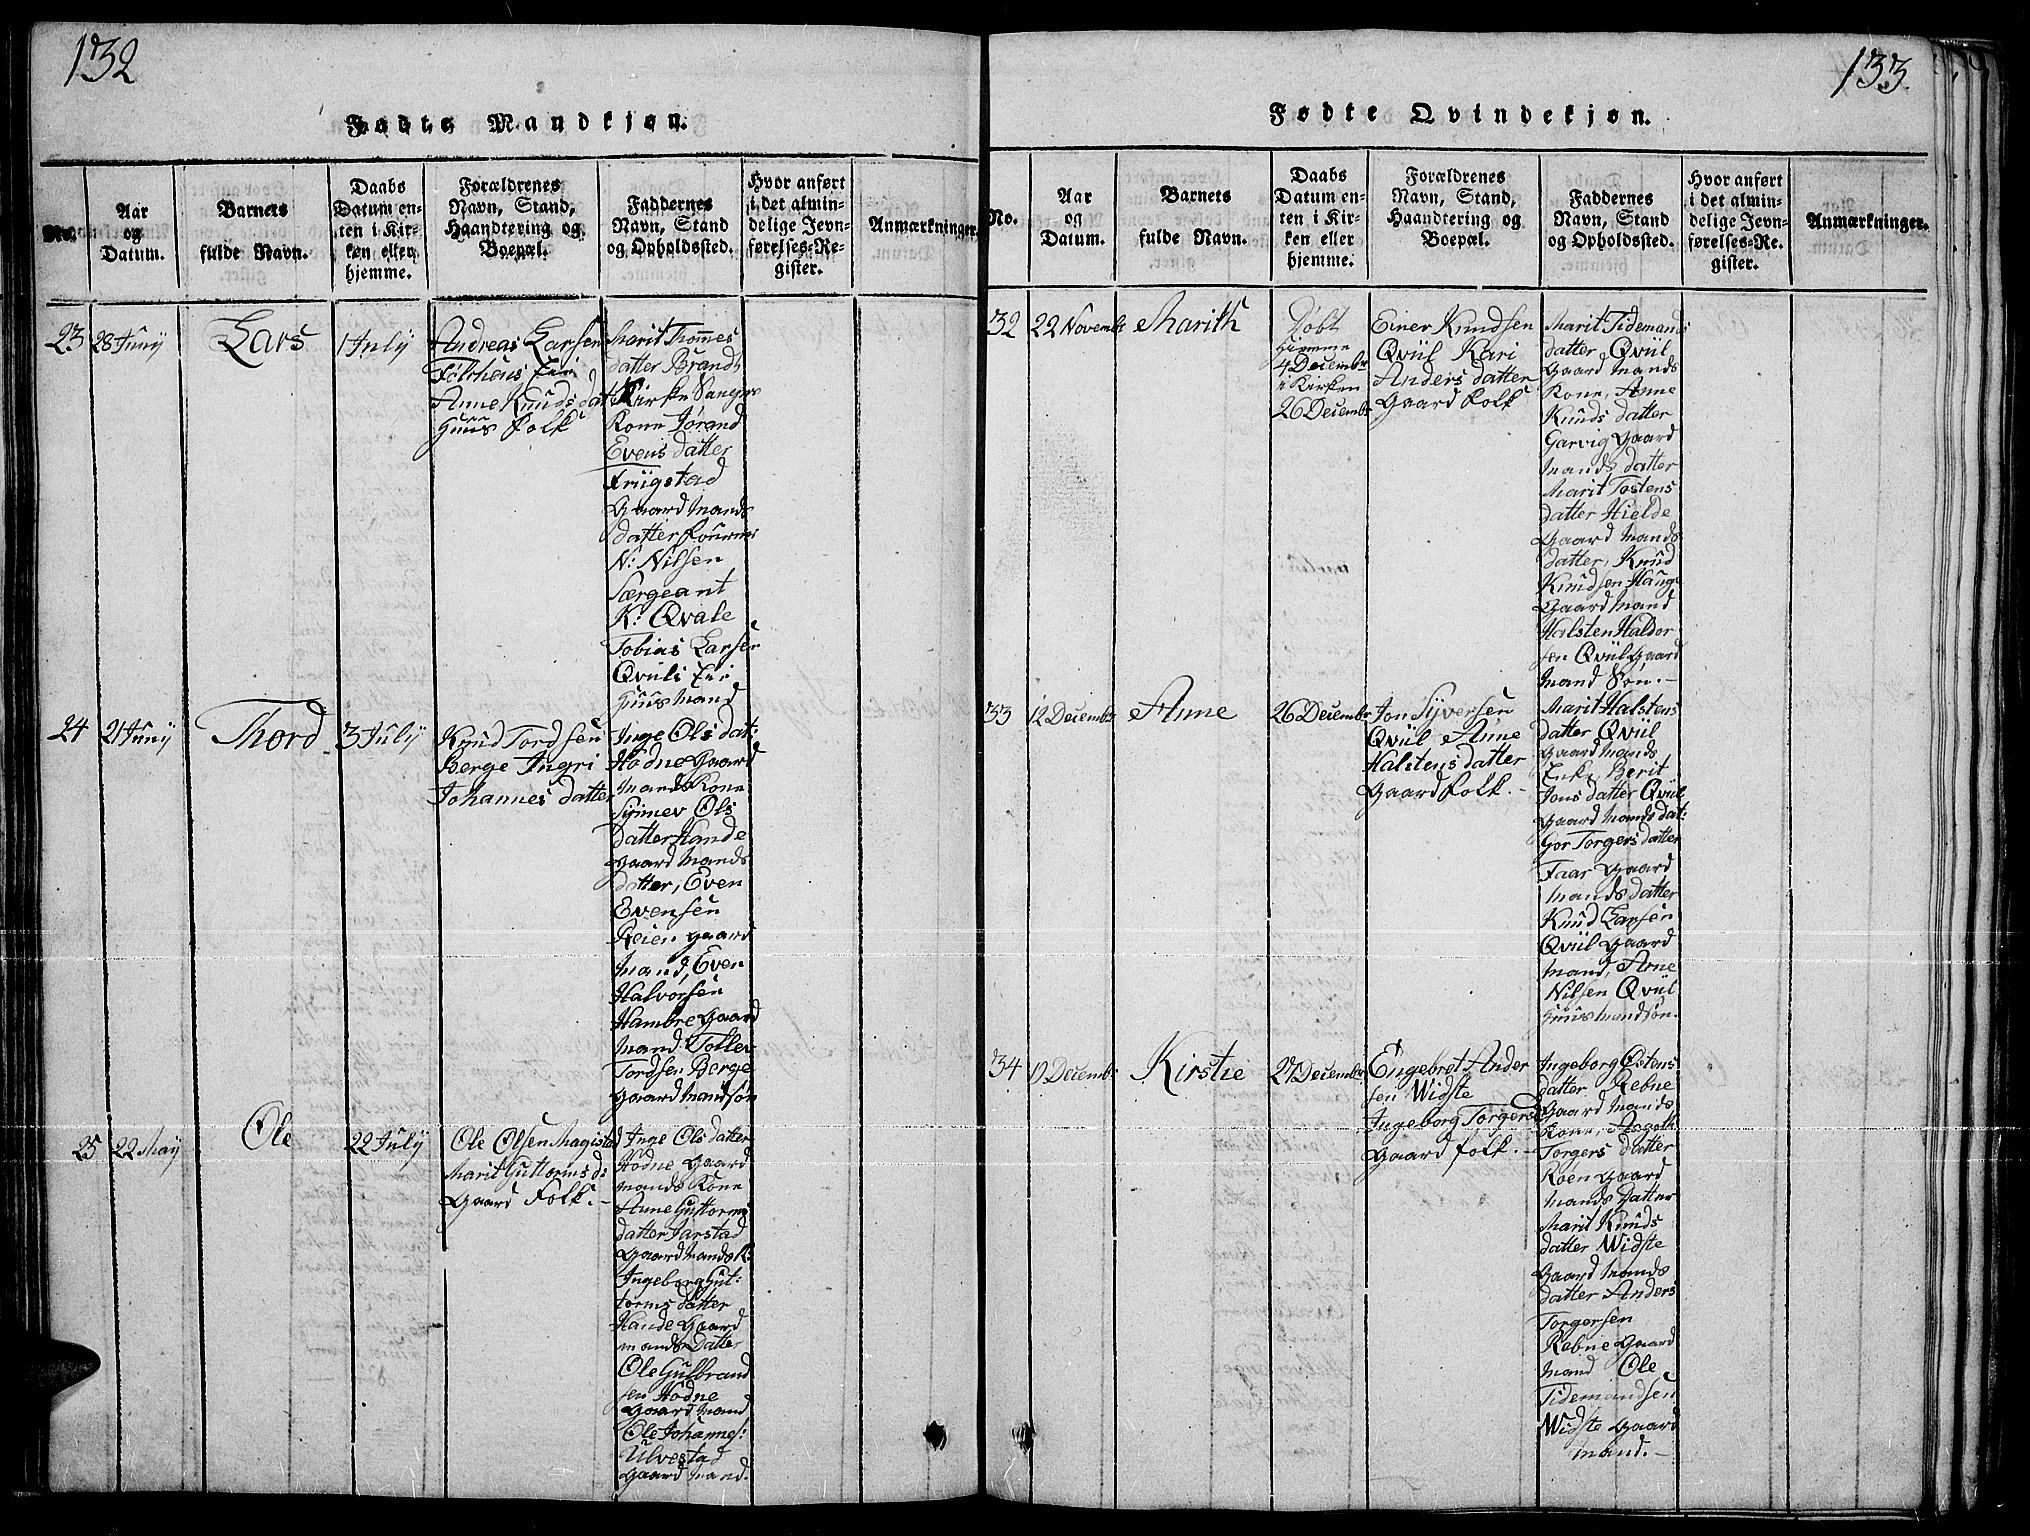 132
Fødte Mandkjøn.
No.
Aar
og
Datum.
Barnets
fulde Navn.
Daabs
Datum en-
ten i Kir-
ken eller
hjemme.
Forældrenes
Navn, Stand,
Haandtering og
Boepæl.
Faddernes
Navn, Stand
og Opholdssted.
Hvor anført
i det almin-
delige Jevn-
førelses-Re-
gister.
Anmærkninger.
23
28 Juny
Lars
1 July
Andreas Larsen
Anne Knuds dat
Huus Folk
Marit Thommes
datter Brands
Kirke Sangers
Kone Jørand
Evens datter
Friigstad
Gaard Mands
datter
N: Nilsen
Særgeant
K: Qvale
Tobias Larsen
Qvüls
Huusmand
24
21 Juny
Thord
3 July
Knud Tordsen
Berge Ingri
Johannes datter
Inge Ols dat:
Hodne Gaard
Mands Kone
Synnev Ols
datter Hande
Gaard Mands
datter, Even
Evensen
Reien gaard
Mand, Even
Halvorsen
Hambre Gaard
Mand Tollev
Tordsen Berge
gaard Mandsøn
25
22 May
Ole
22 July
Ole Olsen Magistad
Marit Guttorms d:
Gaard Folk. -
Inge Ols datter
Hodne Gaard
Mands Kone
Anne Guttorms
datter Jarstad
Gaard Mands K:
Ingeborg Gut:
torms datter
Hande Gaard
mands Datter
Ole Gulbrand
sen Hodne
Gaard Mand
Ole Johannes:
Ulvestad
Gaard Mand.
133.
Fødte Qvindekjøn.
No.
Aar
og
Datum.
Barnets
fulde Navn.
Daabs
Datum en-
ten i Kir-
ken eller
hjemme.
Forældrenes
Navn, Stand,
Haandtering og
Boepæl.
Faddernes
Navn, Stand
og Opholdssted.
Hvor anført
i det almin-
delige Jevn-
førelses-Re-
gister.
Anmærkninger.
32
22 Novembr
Marith
Døbt
hiemme
4 Decembr
i Kirken
26 Decembr
Einer Knudsen
Qvül Kari
Anders datter
Gaard Folk
Marit Tidemands
datter Qvül
Gaard Mands
Kone, Anne
Knuds datter
Garvig Gaard
Mands datter
Marit Tostens
datter Hielde
Gaard Mands
datter, Knud
Knudsen Hauge
Gaard Mand
Halsten Haldor
sen Qvül Gaard
Mand Søn. -
33
12 Decembr
Anne
26 Decembr
Jon Syversen
Qvül Anne
Halstens datter
Gaard Folk. -
Marit Halstens
datter Qvül
Gaard Mands
Enke, Berit
Jons datter Qvül
Gaard Mands dat:
Gor Torgers datter
Faar Gaard
Mands datter
Knud Larsen
Qvül Gaard
Mand, Arne
Nilsen Qvül
Huusmandsøn.
34
19 Decembr
Kirstie
27 Decembr
Engebret Ander
sen Widste
Ingeborg Torgers
Gaard Folk. -
Ingeborg Østens
datter Rebne
Gaard Mands
Kone, Aagoth
Torgers datter
Røen gaard
Mands Datter
Marit Knuds
datter Widste
Gaard Mands
datter Anders
Torgersen
Rebne Gaard
Mand Ole
Tidemandsen
Widste Gaard
Mand. -